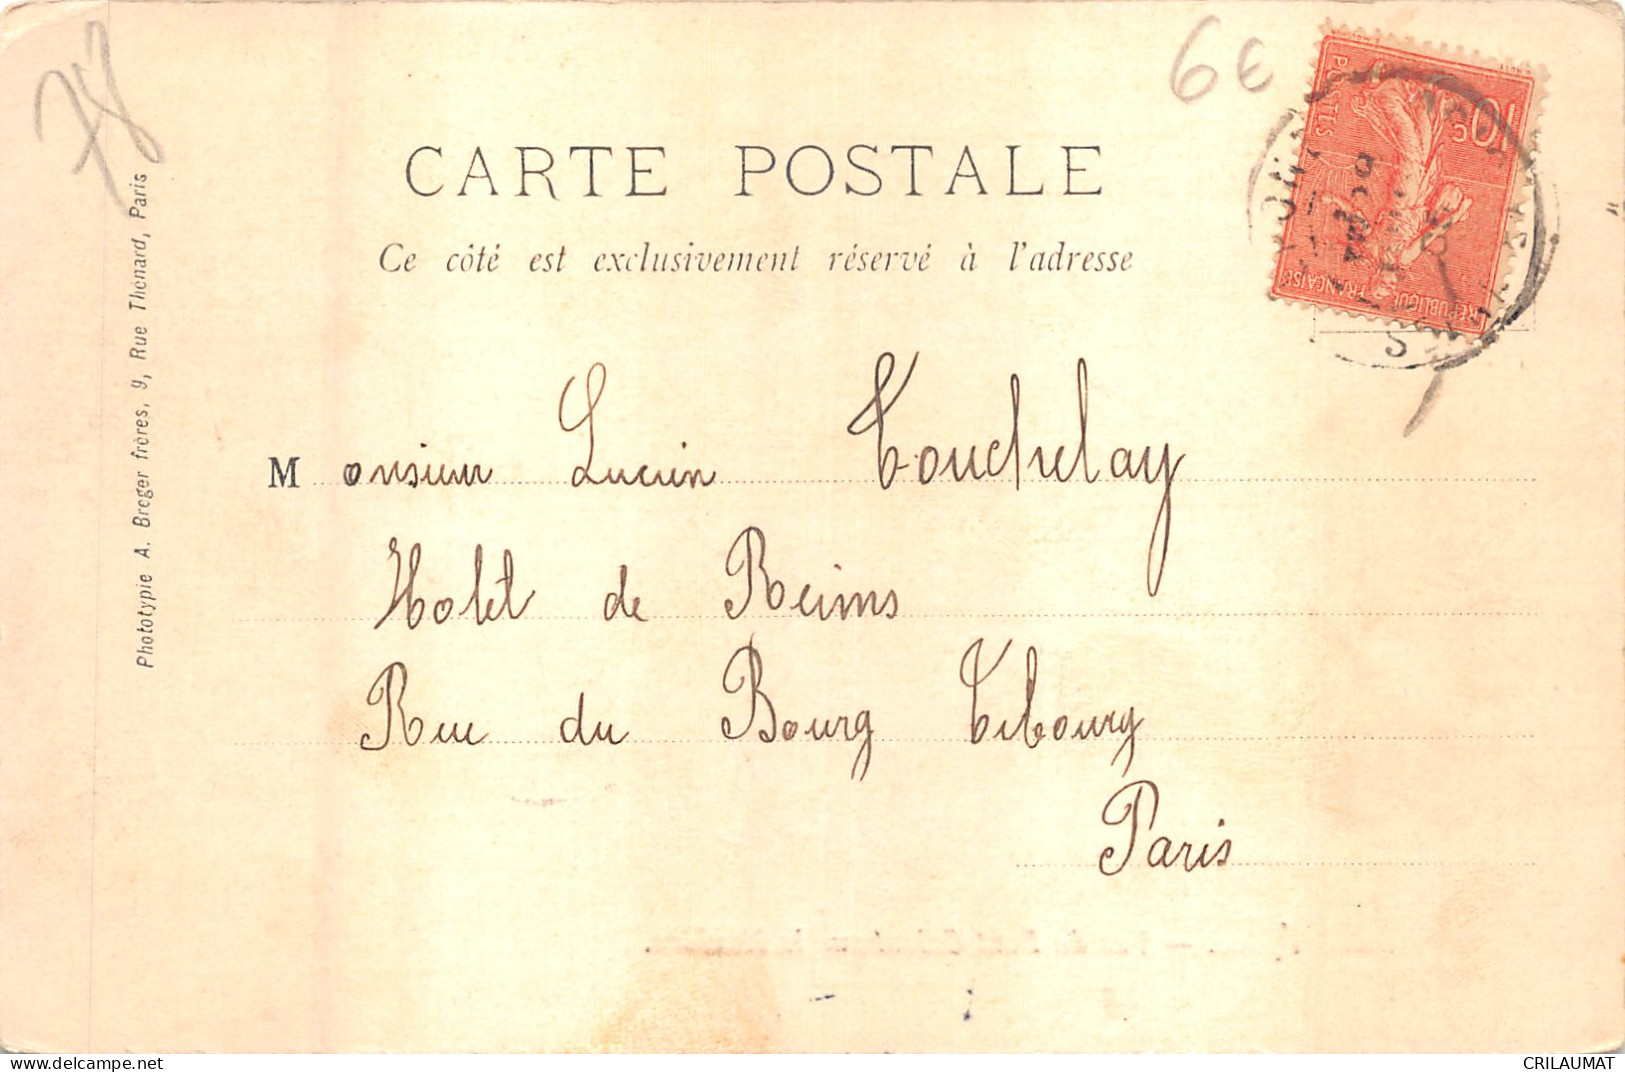 78
6€
CARTE POSTALE
Ce côté est exclusivement réservé à l'adresse
10c
POSTES
REPUBLIQUE FRANÇAISE
Monsieur Lucien Touchelay
Hotel de Reims
Rue du Bourg Tibourg
Paris
Phototypie A. Breger frères, 9, Rue Thénard, Paris
CRILAUMAT